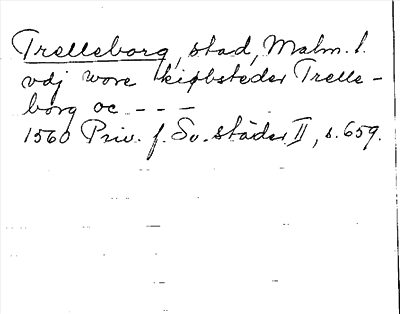 Trelleborg, stad, Malm. l.
vdj wore kiøbsteder Trelle-
borg oc - - -
1560 Priv. f. Sv. städer II, s. 659.